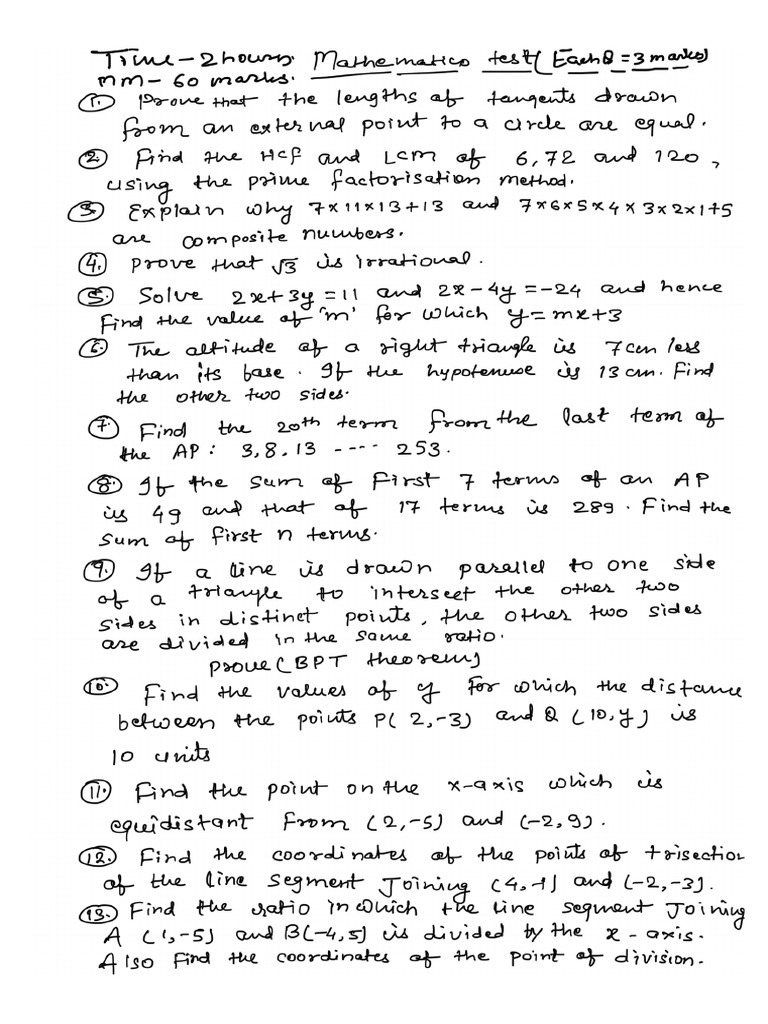 Time - 2 hours. Mathematics test (Each Q = 3 marks)
MM - 60 marks.
1. Prove that the lengths of tangents drawn
from an external point to a circle are equal.
2. Find the HCF and LCM of 6, 72 and 120,
using the prime factorisation method.
3. Explain why 7×11×13+13 and 7×6×5×4×3×2×1+5
are composite numbers.
4. Prove that √3 is irrational.
5. Solve 2x+3y=11 and 2x-4y=-24 and hence
Find the value of 'm' for which y=mx+3
6. The altitude of a right triangle is 7cm less
than its base. If the hypotenuse is 13 cm. Find
the other two sides.
7. Find the 20th term from the last term of
the AP: 3, 8, 13 ---- 253.
8. If the sum of first 7 terms of an AP
is 49 and that of 17 terms is 289. Find the
sum of first n terms.
9. If a line is drawn parallel to one side
of a triangle to intersect the other two
sides in distinct points, the other two sides
are divided in the same ratio.
prove (BPT theorem)
10. Find the values of y for which the distance
between the points P(2,-3) and Q(10,y) is
10 units
11. Find the point on the x-axis which is
equidistant from (2,-5) and (-2,9).
12. Find the coordinates of the points of trisection
of the line segment Joining (4,-1) and (-2,-3).
13. Find the ratio in which the line segment Joining
A (1,-5) and B(-4,5) is divided by the x-axis.
Also find the coordinates of the point of division.